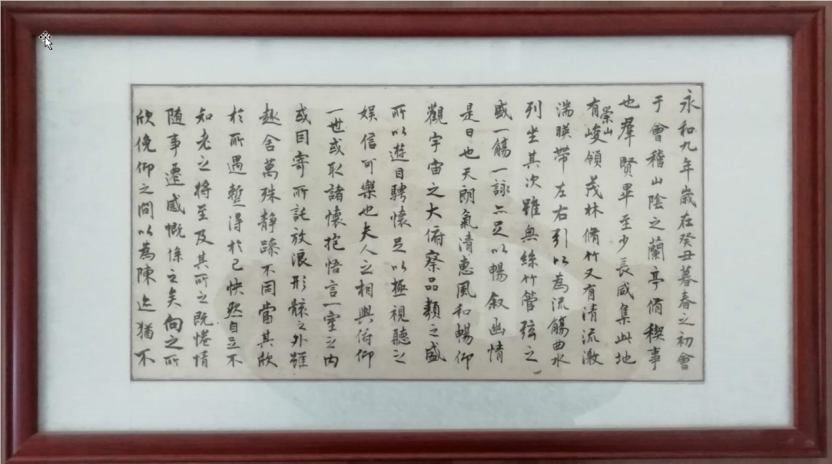 永和九年歲在癸丑暮春之初會
于會稽山陰之蘭亭脩稧事
也羣賢畢至少長咸集此地
有崇山峻領茂林脩竹又有清流激
湍暎帶左右引以為流觴曲水
列坐其次雖無絲竹管弦之
盛一觴一詠亦足以暢敘幽情
是日也天朗氣清惠風和暢仰
觀宇宙之大俯察品類之盛
所以遊目騁懷足以極視聽之
娛信可樂也夫人之相與俯仰
一世或取諸懷抱悟言一室之內
或因寄所託放浪形骸之外雖
趣舍萬殊靜躁不同當其欣
於所遇暫得於己快然自足不
知老之將至及其所之既惓情
隨事遷感慨係之矣向之所
欣俛仰之間以為陳迹猶不